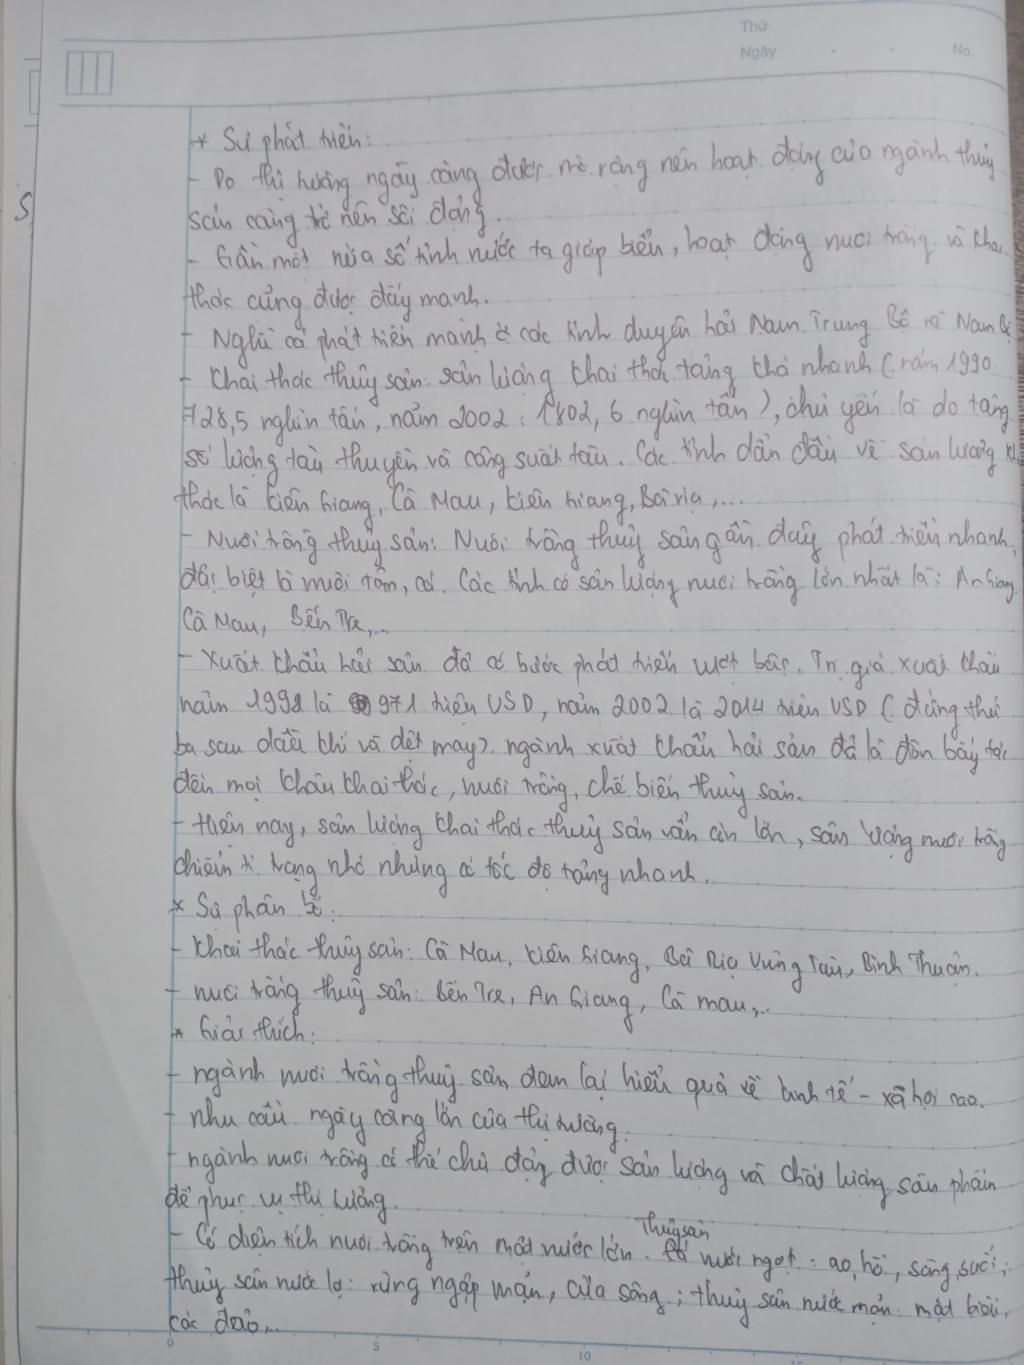 Thứ
Ngày . . No.
S,
* Sự phát triển:
- Do thị trường ngày càng được mở rộng nên hoạt động của ngành thuỷ
sản càng trở nên sôi động.
- Gần một nửa số tỉnh nước ta giáp biển, hoạt động nuôi trồng và khai
thác cũng được đẩy mạnh.
- Nghề cá phát triển mạnh ở các tỉnh duyên hải Nam Trung Bộ và Nam Bộ
- Khai thác thuỷ sản: sản lượng khai thác tăng khá nhanh (năm 1990
728,5 nghìn tấn, năm 2002: 1802,6 nghìn tấn), chủ yếu là do tăng
số lượng tàu thuyền và công suất tàu. Các tỉnh dẫn đầu về sản lượng
thác là Kiên Giang, Cà Mau, Kiên Giang, Bà rịa,...
- Nuôi trồng thuỷ sản: Nuôi trồng thuỷ sản gần đây phát triển nhanh,
đặc biệt là nuôi tôm, cá. Các tỉnh có sản lượng nuôi trồng lớn nhất là: An Giang,
Cà Mau, Bến Tre,...
- Xuất khẩu hải sản đã có bước phát triển vượt bậc. Trị giá xuất khẩu
năm 1992 là 971 triệu USD, năm 2002 là 2014 triệu USD (đứng thứ
ba sau dầu khí và dệt may). ngành xuất khẩu hải sản đã là đòn bẩy tác
đến mọi khâu khai thác, nuôi trồng, chế biến thuỷ sản.
- Hiện nay, sản lượng khai thác thuỷ sản vẫn còn lớn, sản lượng nuôi trồng
chiếm tỉ trọng nhỏ nhưng có tốc độ tăng nhanh.
* Sự phân bố:
- Khai thác thuỷ sản: Cà Mau, Kiên Giang, Bà Rịa Vũng Tàu, Bình Thuận.
- nuôi trồng thuỷ sản: Bến Tre, An Giang, Cà mau,..
* Giải thích:
- ngành nuôi trồng thuỷ sản đem lại hiểu quả về kinh tế - xã hội cao.
- nhu cầu ngày càng lớn của thị trường.
- ngành nuôi trồng có thể chủ động được sản lượng và chất lượng sản phẩm
để phục vụ thị trường.
- Có diện tích nuôi trồng trên mặt nước lớn. Thuỷ sản nước ngọt: ao, hồ, sông, suối;
thuỷ sản nước lợ: rừng ngập mặn, cửa sông; thuỷ sản nước mặn: mặt biển,
các đảo,..
0 5 10